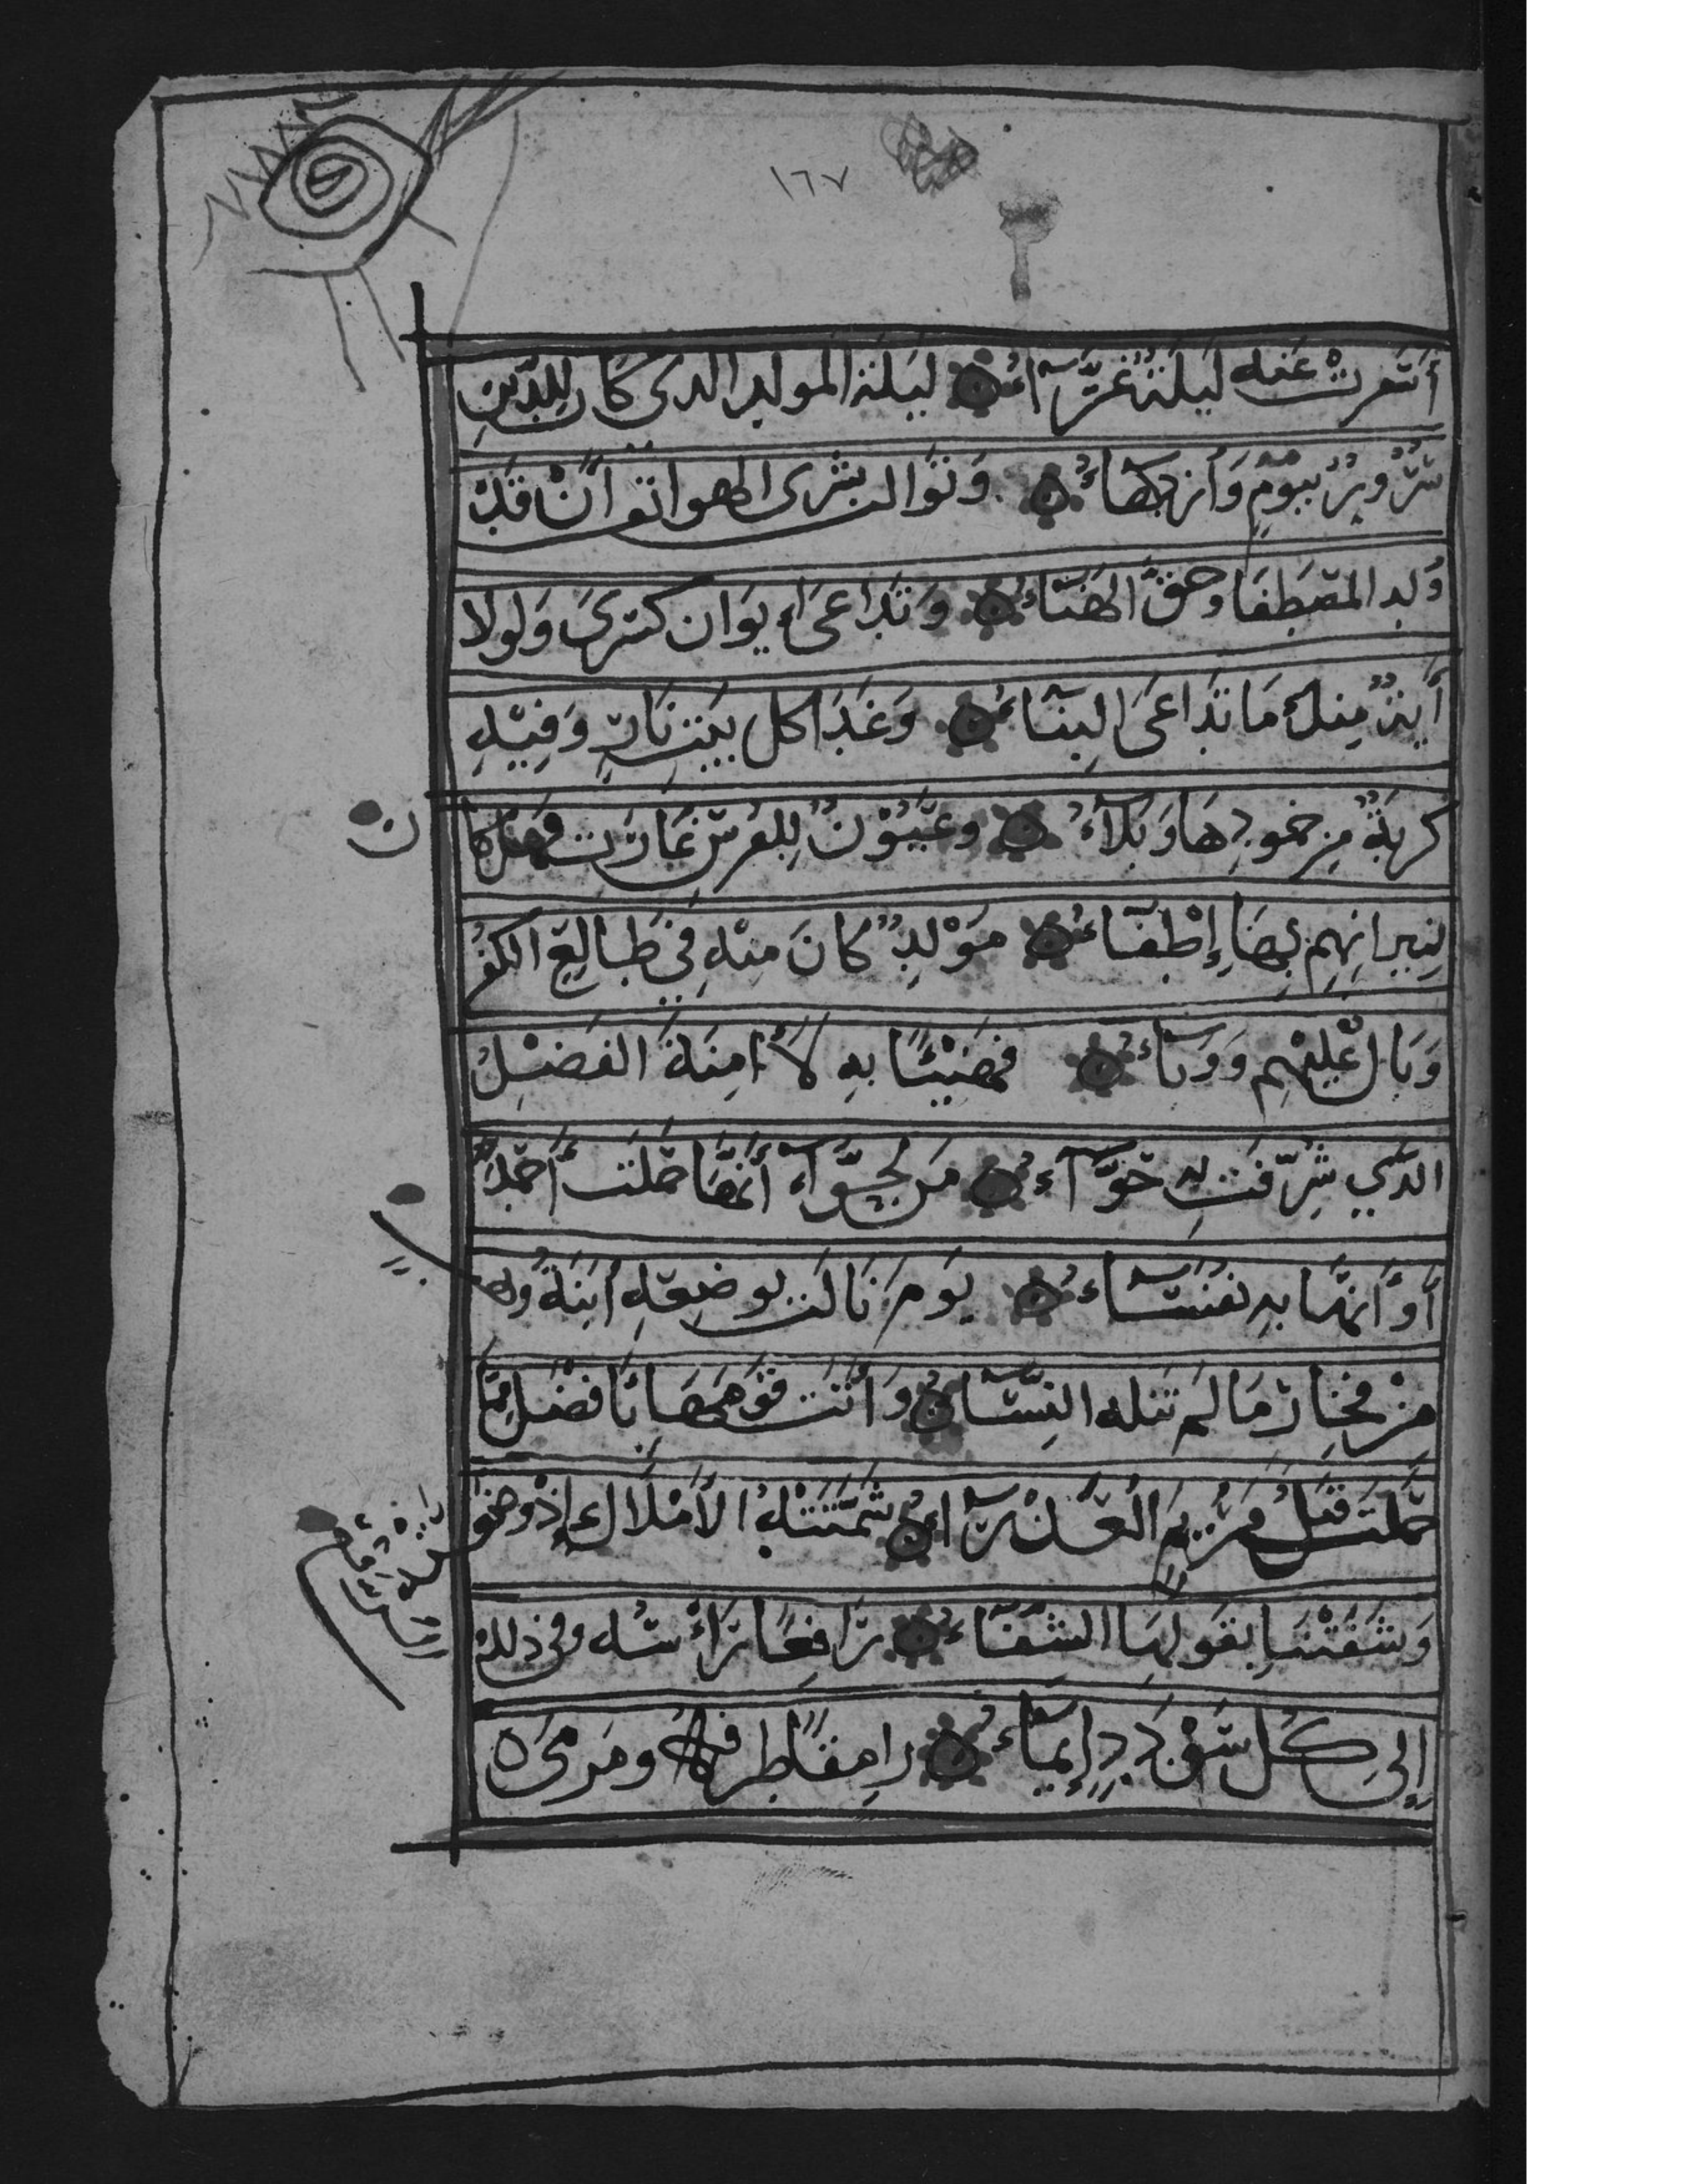 ١٦٧
أسفرت عنه ليلة غرّآء ليلة المولد الدى كان للدّين
سُرُورٌ بيومٍ وَأزدِهآءُ وَتَوَالت بشرى الهواتف أنْ قَدْ
وُلِد المصطفا وحقّ الهنآءُ وَتَدَاعَى إيوَان كسْرَى وَلولا
أيةٌ مِنكَ مَا تدَاعَى البِنآءُ وَغَدَا كل بيتِ نَارٍ وَفِيْهِ
كربةٌ مِن خمودِهَا وَبَلآءُ وعُيُوْنٌ لِلفُرسِ غَارَت فهل كا
لِنِيرانِهِم بِهَا إِطْفآءُ مَوْلِدٌ كانَ مِنْهِ فِي طَالِعِ الكفر
وَبَال عَلَيْهِم وَوَبآءُ فهَنِيْئًا بهِ لأمِنَةَ الفَضْلُ
الدّي شرّفتْ بِهِ حَوّآءُ مَن لحوّآء أنّهَا حملت أحْمَد
أو أنّهَا بهِ نفسَآءُ يومَ نَالت بوضعهِ ابنَةُ وهب
مِنْ فخارٍ مَا لم تنله النِّسَآءُ وَأتت قومَهَا بأفضل ممّا
حَمَلت قَبلُ مَرْيَمُ الْعَذْرَآءُ شمّتَتْهُ الأَمْلَاك إِذْ وضعته
وَشَفَتْنَا بِقولهَا الشّفّآءُ رَافِعًا رَأسَه وفي ذلك
إِلى كلّ سُؤْدَدٍ إِيمآءُ رامِقًا طرفه ومَرمى